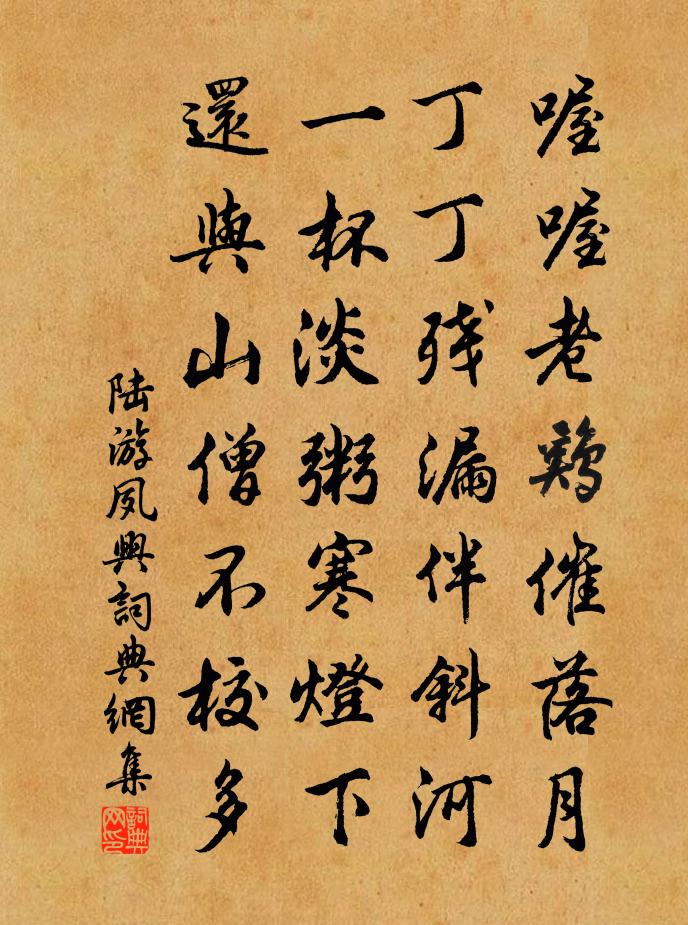 喔喔老鷄催落月
丁丁残漏伴斜河
一杯淡粥寒燈下
還與山僧不校多
陆游夙興詞典網集
詞典网印